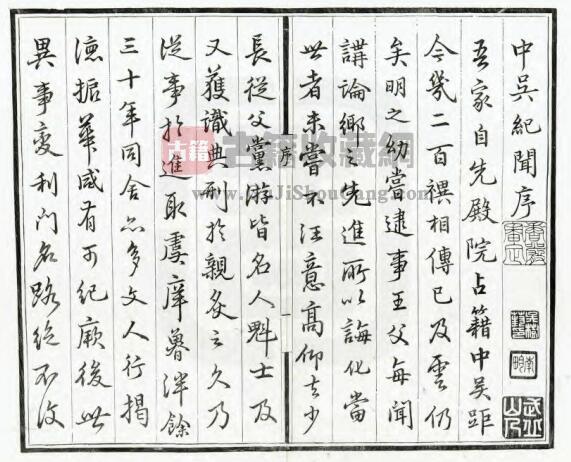 中吳紀聞序
吾家自先殿院占籍中吳距
今幾二百禩相傳已及雲仍
矣明之幼嘗逮事王父每聞
講論鄉之先進所以誨化當
世者未嘗不注意高仰之少
序
一
長從父黨游皆名人魁士及
又獲識典刑於親炙之久乃
從事於進取虞庠魯泮餘
三十年同舍亦多文人行揭
德振華咸有可紀厥後世
異事變利門名路絕不復
古籍
古籍收藏網
www.GuJiShouCang.com